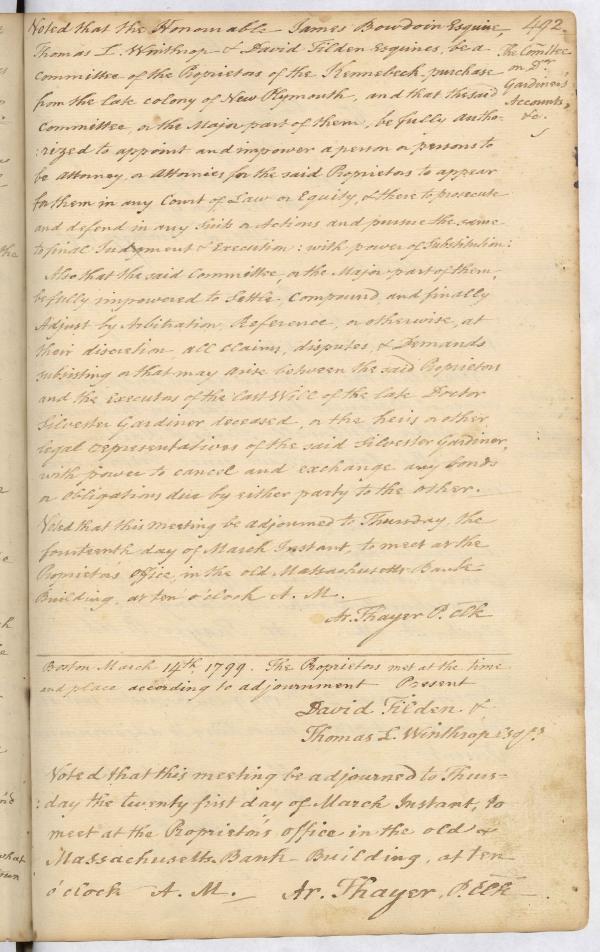 492.
Voted that the Honourable James Bowdoin Esquire,
Thomas L. Winthrop & David Tilden Esquires, be a
committee of the Proprietors of the Kennebeck purchase
from the late colony of New Plymouth, and that the said
Committee, or the Major part of them, be fully autho-
:rized to appoint and impower a person or persons to
be Attorney or Attornies for the said Proprietors to appear
for them in any Court of Law or Equity, & there to prosecute
and defend in any Suits or Actions and pursue the same
to final Judgment & Execution : with power of Substitution:
Also that the said Committee, or the Major part of them,
be fully impowered to Settle, Compound, and finally
Adjust by Arbitration, Reference, or otherwise, at
their discretion, all Claims, disputes, & Demands
subsisting or that may arise between the said Proprietors
and the Executors of the Last Will of the late Doctor
Silvester Gardiner deceased, or the heirs or other
legal representatives of the said Silvester Gardiner,
with power to cancel and exchange any bonds
or Obligations due by either party to the other.
Voted that this meeting be adjourned to Thursday, the
fourteenth day of March Instant, to meet at the
Proprietors Office, in the old Massachusetts Bank
Building, at ten o'clock A. M.
Ar. Thayer P. Clk
The Com̃ttee
on Dr.
Gardiner's
Accounts,
&c.
Boston March 14th. 1799. The Proprietors met at the time
and place according to adjournment Present
David Tilden &
Thomas L. Winthrop Esqrs.
Voted that this meeting be adjourned to Thurs-
:day the twenty first day of March Instant, to
meet at the Proprietor's office in the old
Massachusetts Bank Building, at ten
o'clock A. M. Ar. Thayer, P. Clk